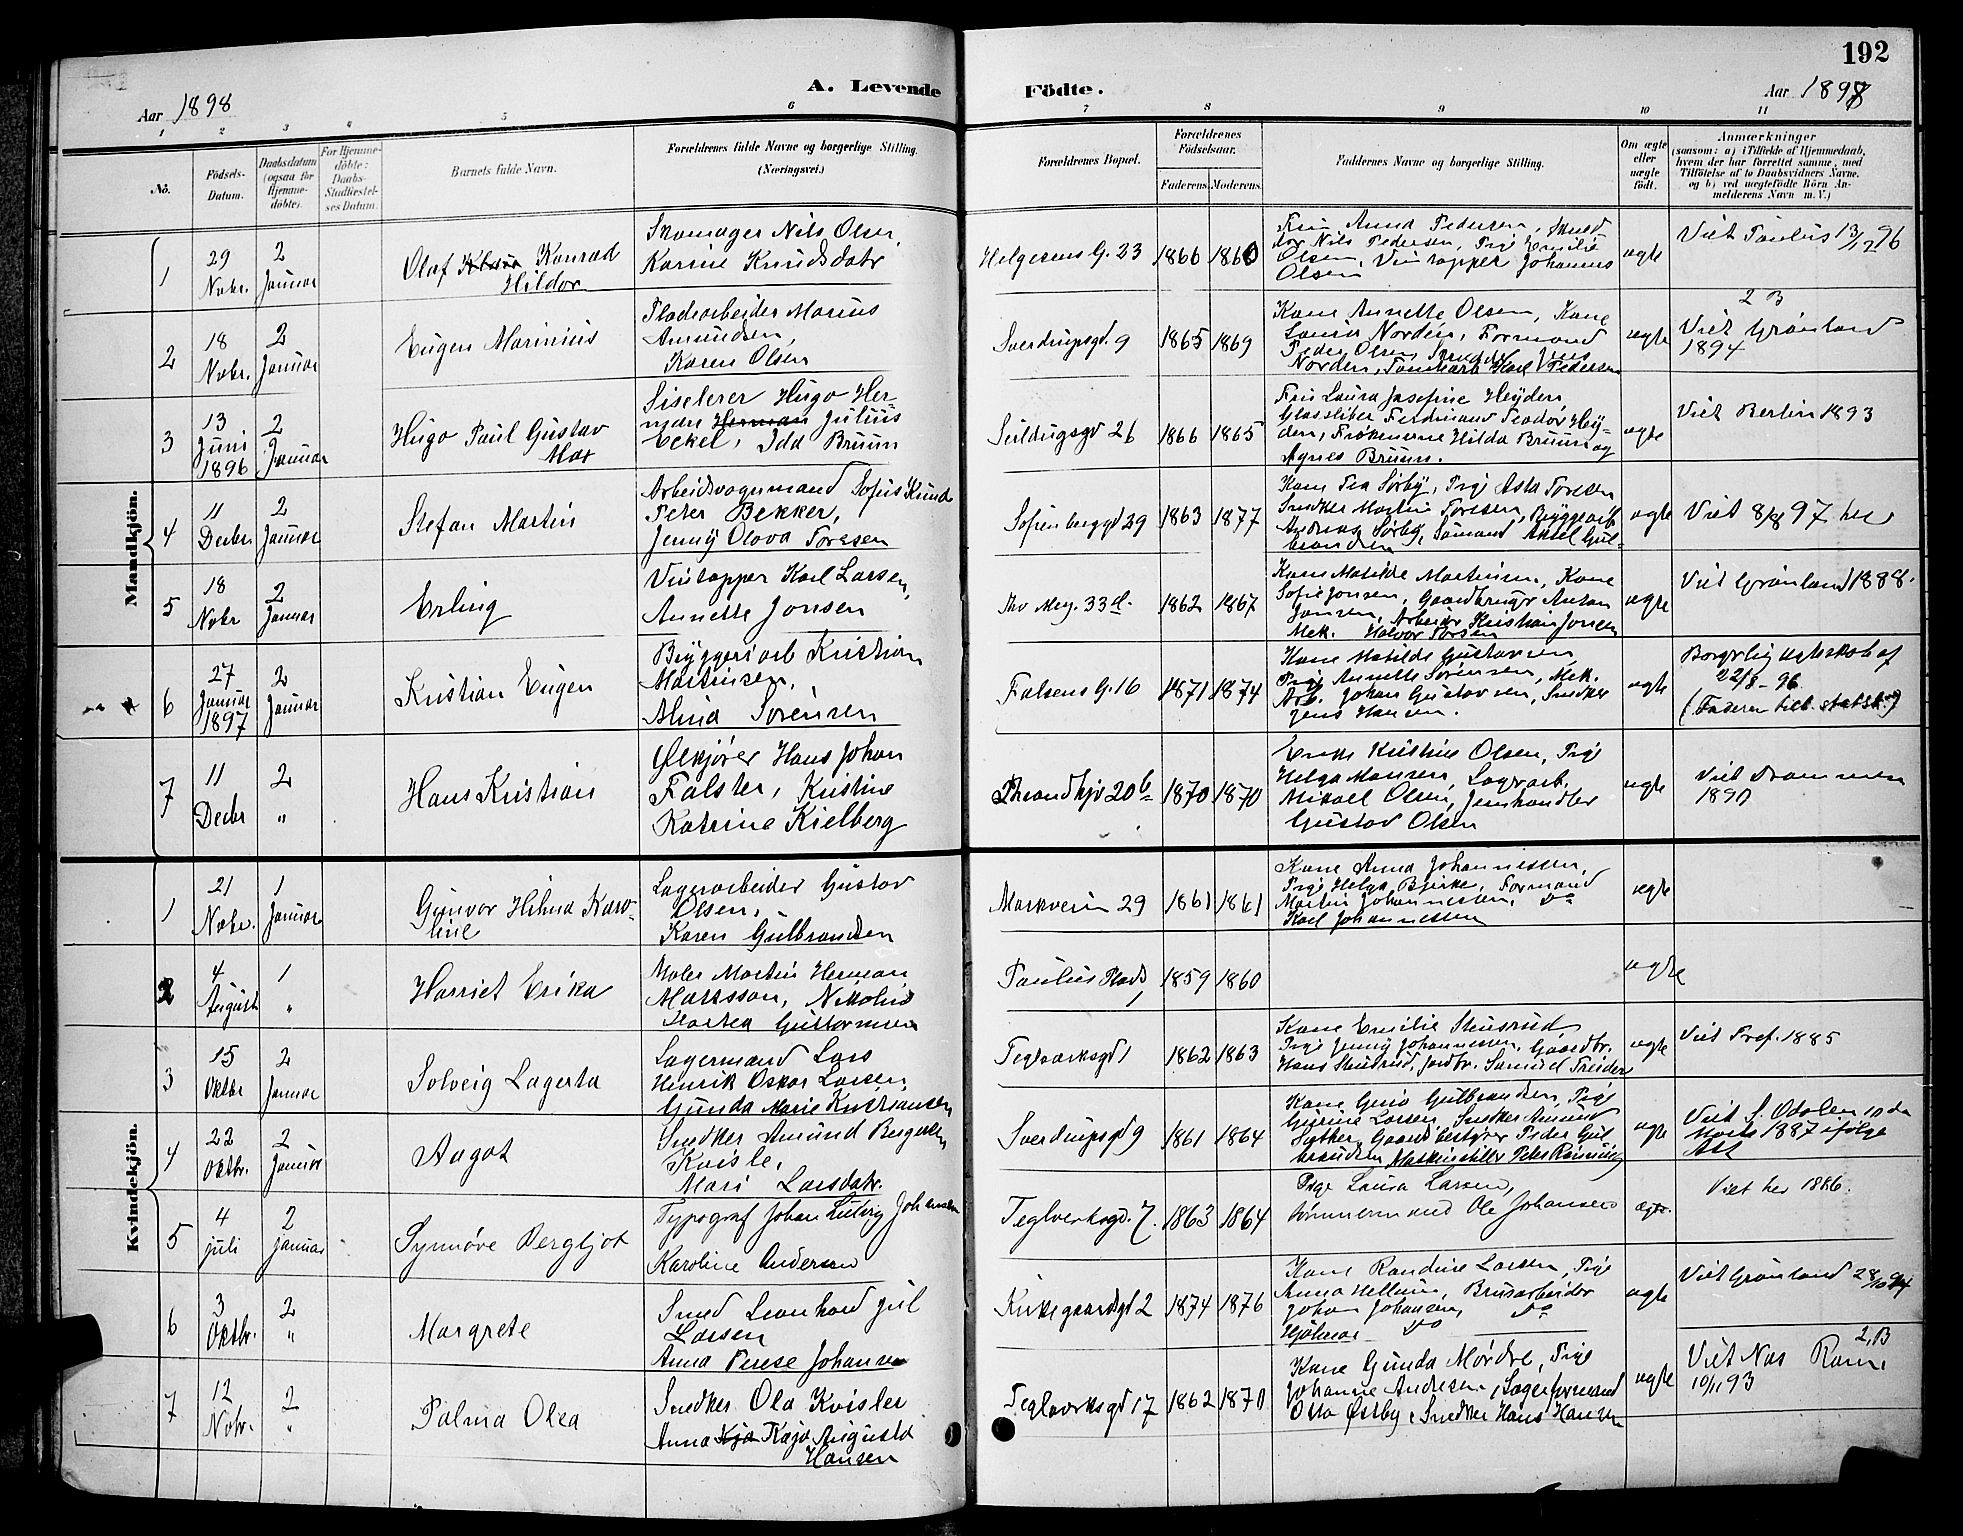 192
A. Levende Födte.
Aar 1898
Aar 1898
1 2 3 4 5 6 7 8 9 10 11
No.
Födsels-Datum.
Daabsdatum (ogsaa for Hjemme-döbte).
For Hjemme-döbte: Daabs-Stadfæstel-ses Datum.
Barnets fulde Navn.
Forældrenes fulde Navne og borgerlige Stilling.
(Næringsvei.)
Forældrenes Bopæl.
Forældrenes Födselsaar.
Faderens. Moderens.
Faddernes Navne og borgerlige Stilling.
Om ægte eller uægte födt.
Anmærkninger
(saasom: a) i Tilfælde af Hjemmedaab,
hvem der har forrettet samme, med
Tilföielse af to Daabsvidners Navne.
og b) ved uægtefödte Börn An-
melderens Navn m. V.)
Mandkjön.
1
29 Nobr.
2 Januar
Olaf Konrad
Hildor
Skomager Nils Olsen,
Karine Knudsdatr
Helgesens G. 23
1866 1860
Frue Anna Pedersen, Sned-
ker Nils Pedersen, Pige Emilie
Olsen, Vintapper Johannes
Olsen
ægte
Viet Paulus 13/12 96
2
18 Nobr.
2 Januar
Eugen Marinius
Pladearbeider Marius
Amundsen,
Karen Olsen
Sverdrupsgd. 9
1865 1869
Kone Annette Olsen, Kone
Laura Norden, Formand
Peder Olsen, Snedker Jens
Norden, Karl Pedersen
ægte
2 B
Viet Grønland
1894
3
13 Juni 1896
2 Januar
Hugo Paul Gustav
Max
Siselerer Hugo Her-
man Herman Julius
Eckel, Ida Bruun
Seildugsgd 26
1866 1865
Fru Laura Josefine Heyden
Glassliber Ferdinand Teodor Hey-
den, Frøknerne Hilda Bruun og
Agnes Bruun.
ægte
Viet Berlin 1893
4
11 Decbr
2 Januar
Stefan Martin
Arbeidsvogumand Sofus Knud
Peter Bekker,
Jenny Olova Toresen
Sofienberggd 29
1863 1877
Kone Tea Sørby, Pige Asta Toresen
Snedker Martin Toresen, Bryggeriarb
Andreas Sørby, Sømand Aksel Gul-
brandsen
ægte
Viet 8/8 97 her
5
18 Nobr
2 Januar
Erling
Vintapper Karl Larsen,
Annette Jonsen
Thv Mey. 33 d.
1862 1867
Kone Matilde Martinsen, Kone
Sofie Jonsen, Gaardbruger Anton
Jonsen, Arbeider Kristian Jonsen
Mek. Halvor Torsen
ægte
Viet Grønland 1888.
6
27 Januar 1897
2 Januar
Kristian Eugen
Bryggeriarb Kristian
Martinsen,
Alma Sørensen
Falsens G. 16
1871 1874
Kone Matilde Gustavsen,
Pige Annette Sørensen, Mek.
Arb. Johan Gustavsen, Snedker
Jens Hansen.
ægte
Borgerlig ægteskab af
22/8 - 96
(Faderen tilh. statsk.)
7
11 Decbr
2 "
Hans Kristian
Ølkjører Hans Johan
Falster, Kristine
Katrine Kielberg
Thrandhjv 20 b
1870 1870
Enke Kristine Olsen, Pige
Helga Hansen, Lagerarb.
Mikael Olsen, Jernhandler
Gustav Olsen
ægte
Viet Drammen
1890
Kvindekjön.
1
21 Nobr.
1 Januar
Gunvor Hilma Karo-
line
Lagerarbeider Gustav
Olsen,
Karen Gulbrandsen
Markveien 29
1861 1861
Kone Anna Johannessen,
Pige Helga Bjerke, Formand
Martin Johannessen, do
Karl Johannessen
ægte
2
4 August
1 "
Harriet Erika
Maler Martin Herman
Marksson, Nikoline
Martea Guttormsen
Paulus Plads
1
1859 1860
ægte
3
15 Oktbr
2 Januar
Solveig Lagerta
Lagermand Lars
Henrik Oskar Larsen,
Gunda Marie Kristiansen
Teglværksgd 1
1862 1863
Kone Emilie Stensrud
Pige Jenny Johannessen, Gaardbr.
Hans Stensrud, Jordbr. Samuel Treider
ægte
Viet Pref. 1885
4
22 Oktbr.
2 Januar
Aagot
Snedker Amund Bergersen
Kvisle,
Mari Larsdatr.
Sverdrupsgd 9
1861 1864
Kone Gina Gulbrandsen, Pige
Gurine Larsen, Snedker Amund
Sæther, Gaardbestyrer Peder Gul-
brandsen,
ægte
Viet S. Odalen 10 de
Marts 1887 ifølge
Att
5
4 juli
2 januar
Synnøve Bergljot
Typograf Johan Ludvig Johansen
Karoline Andersen
Teglverksgd. 7.
1863 1864
Pige Laura Larsen,
tømmermand Ole Johansen
ægte.
Viet her 1886.
6
3 Oktbr.
2 "
Margrete
Smed Leonhard Jul
Larsen
Anna Terese Johansen
Kirkegaardsgd 2
1874 1876
Kone Randine Larsen, Pige
Anna Hellum, Brusarbeider
Johan Johansen, do
Hjalmar do
ægte
Viet Grønland 28/10 94
7
12 Nobr.
2 "
Palma Olea
Snedker Ola Kvisler
Anna Kaja Augusta
Hansen
Teglværksgd 17
1862 1870
Kone Gunda Mørdre, Pige
Johanne Andersen, Lagerformand
Otto Østby, Snedker Hans Hansen
ægte
2, B
Viet Nas Rom.
10/11 93